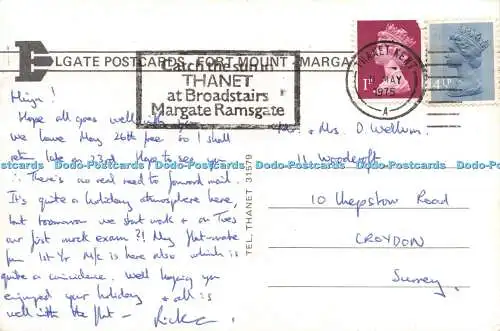 ELGATE POSTCARDS FORT MOUNT MARGA
Catch the sun in
THANET
at Broadstairs
Margate Ramsgate
THANET KENT
MAY
1975
A
1P
4½P
TEL. THANET 31579
Hiya!
Hope all goes well with you
we have May 26th free so I shall
retn late on 23rd. Hope to see you
∴ There's no real need to forward mail.
It's quite a holiday atmosphere here,
but tomorrow we start work & on Tues
our first mock exam?! My flat-mate
from 1st Yr M/c is here also which is
quite a coincidence. Well hoping you
enjoyed your holiday & all is
well with the flat -
& Mrs. D Wellum
11 Woodcroft
10 Chepstow Road
CROYDON
Surrey.
Docks-Postcards Docks-Postcards Docks-Postcards